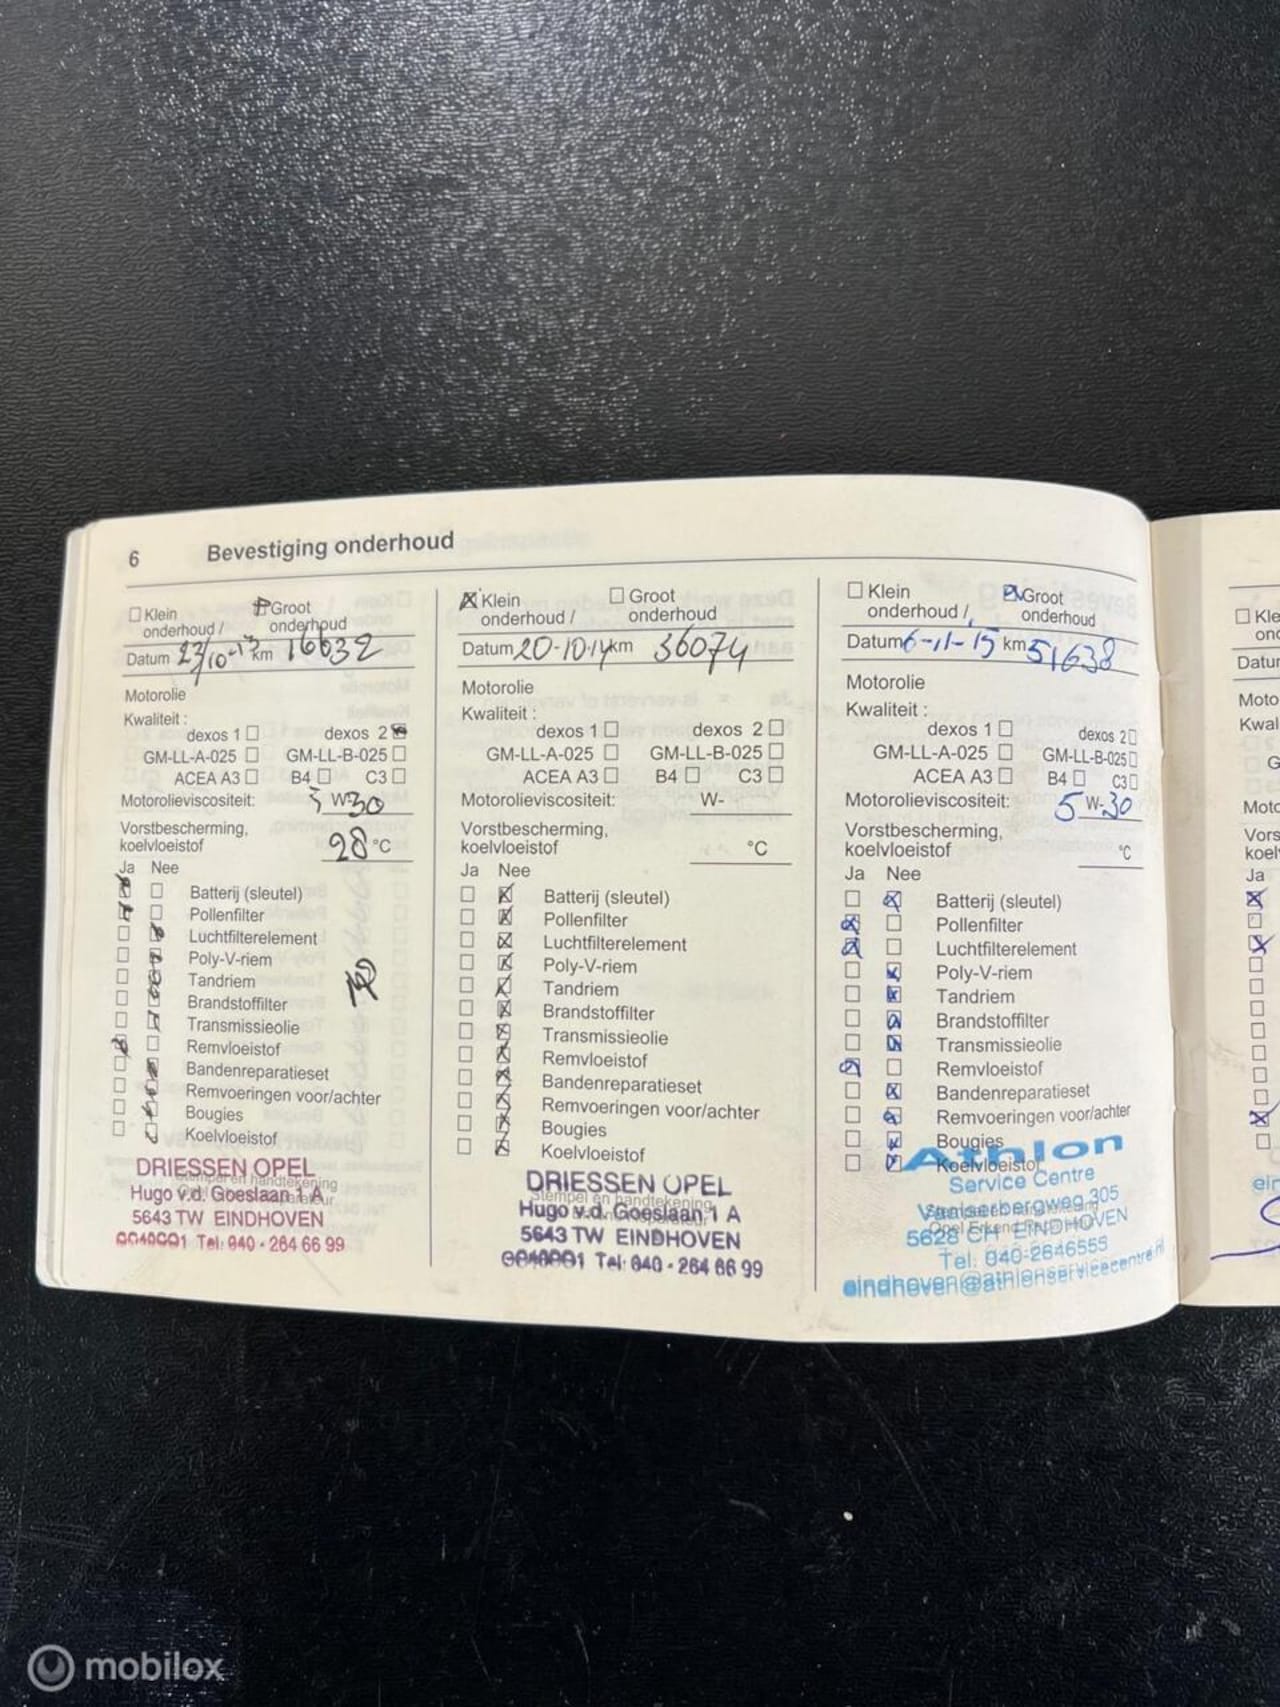 6 Bevestiging onderhoud
☐ Klein onderhoud / ☒ Groot onderhoud
Datum 23/10-13 km 16632
Motorolie
Kwaliteit :
dexos 1 ☐ dexos 2 ☒
GM-LL-A-025 ☐ GM-LL-B-025 ☐
ACEA A3 ☐ B4 ☐ C3 ☐
Motorolieviscositeit: 5 W-30
Vorstbescherming,
koelvloeistof 28 °C
Ja Nee
☒ ☐ Batterij (sleutel)
☒ ☐ Pollenfilter
☐ ☒ Luchtfilterelement
☐ ☒ Poly-V-riem
☐ ☒ Tandriem
☐ ☒ Brandstoffilter
☐ ☒ Transmissieolie
☒ ☐ Remvloeistof
☐ ☒ Bandenreparatieset
☐ ☒ Remvoeringen voor/achter
☐ ☒ Bougies
☐ ☒ Koelvloeistof
DRIESSEN OPEL
Stempel en handtekening
Hugo v.d. Goeslaan 1 A
5643 TW EINDHOVEN
Tel: 040 - 264 66 99
☒ Klein onderhoud / ☐ Groot onderhoud
Datum 20-10-14 km 36074
Motorolie
Kwaliteit :
dexos 1 ☐ dexos 2 ☐
GM-LL-A-025 ☐ GM-LL-B-025 ☐
ACEA A3 ☐ B4 ☐ C3 ☐
Motorolieviscositeit: W-
Vorstbescherming,
koelvloeistof °C
Ja Nee
☐ ☒ Batterij (sleutel)
☐ ☒ Pollenfilter
☐ ☒ Luchtfilterelement
☐ ☒ Poly-V-riem
☐ ☒ Tandriem
☐ ☒ Brandstoffilter
☐ ☒ Transmissieolie
☐ ☒ Remvloeistof
☐ ☒ Bandenreparatieset
☐ ☒ Remvoeringen voor/achter
☐ ☒ Bougies
☐ ☒ Koelvloeistof
DRIESSEN OPEL
Stempel en handtekening
Hugo v.d. Goeslaan 1 A
5643 TW EINDHOVEN
Tel: 040 - 264 66 99
☐ Klein onderhoud / ☒ Groot onderhoud
Datum 6-11-15 km 51638
Motorolie
Kwaliteit :
dexos 1 ☐ dexos 2 ☐
GM-LL-A-025 ☐ GM-LL-B-025 ☐
ACEA A3 ☐ B4 ☐ C3 ☐
Motorolieviscositeit: 5 W-30
Vorstbescherming,
koelvloeistof °C
Ja Nee
☐ ☒ Batterij (sleutel)
☒ ☐ Pollenfilter
☒ ☐ Luchtfilterelement
☐ ☒ Poly-V-riem
☐ ☒ Tandriem
☐ ☒ Brandstoffilter
☐ ☒ Transmissieolie
☒ ☐ Remvloeistof
☐ ☒ Bandenreparatieset
☐ ☒ Remvoeringen voor/achter
☐ ☒ Bougies
☐ ☒ Koelvloeistof
Athlon
Service Centre
305
5628 CH EINDHOVEN
Tel: 040-2646555
eindhoven@athlonservicecentre.nl
☐ Kle
Datum
Moto
Kwal
Moto
Vors
koel
Ja
mobilox